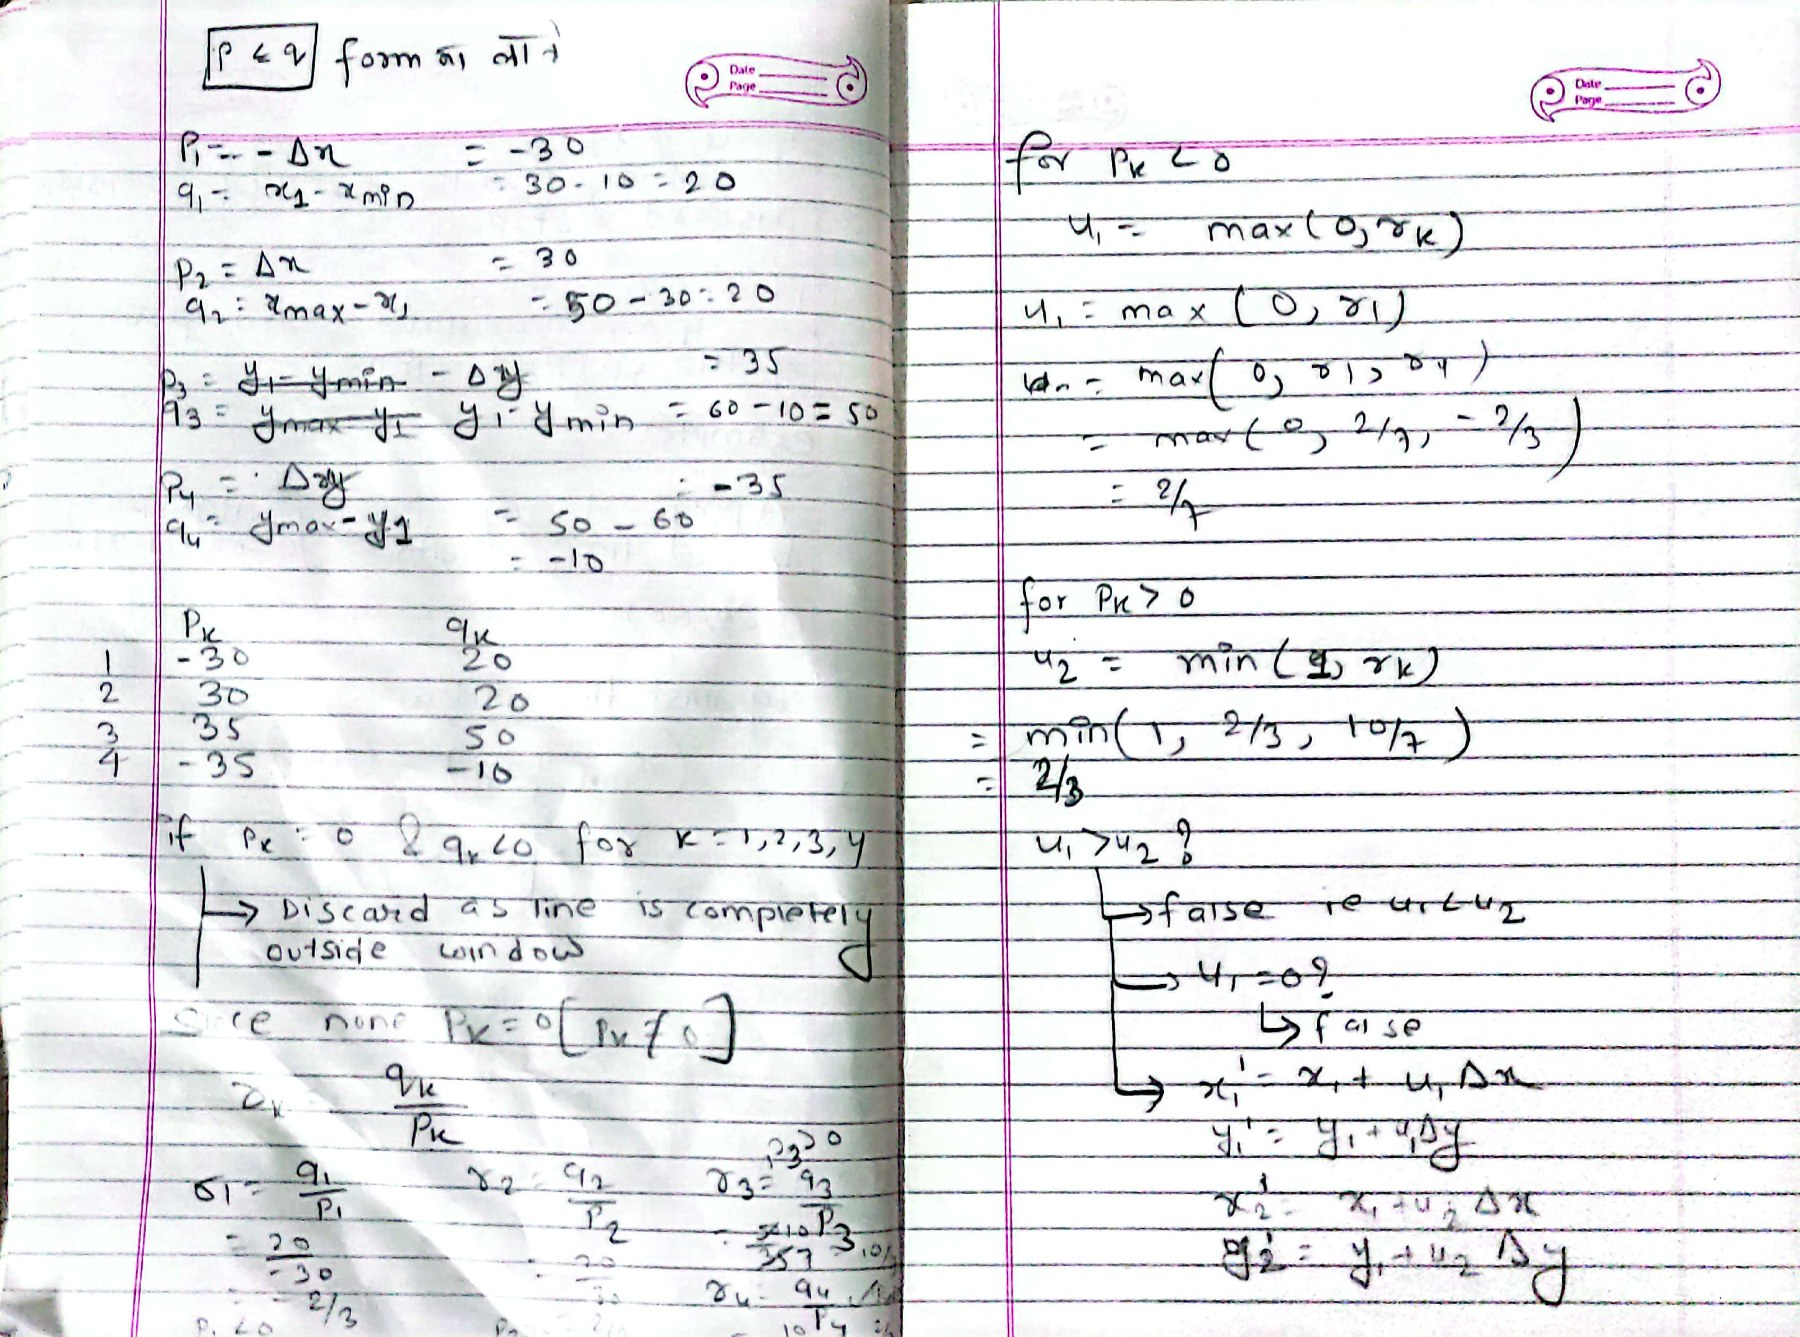 P ≤ q form मा लाने
Date
Page
P₁ = - Δx = -30
q₁ = x₁ - xmin = 30 - 10 = 20
P₂ = Δx = 30
q₂ = xmax - x₁ = 50 - 30 = 20
P₃ = y₁ - ymin - Δy = 35
q₃ = ymax - y₁ y₁ - ymin = 60 - 10 = 50
P₄ = Δy = -35
q₄ = ymax - y1 = 50 - 60
= -10
Pk qk
1 -30 20
2 30 20
3 35 50
4 -35 -10
if Pk = 0 & qk < 0 for k = 1, 2, 3, 4
→ Discard as line is completely
outside window
Since none Pk = 0 [Pk ≠ 0]
rk qk
Pk
P3 > 0
r1 = q₁/P₁ r2 = q2/P2 r3 = q3/P3
= 20/-30 = 20/30
= -2/3 r4 = q4/P4
P₁ < 0
Date
Page
for Pk < 0
u₁ = max(0, rk)
u₁ = max(0, r1)
= max(0, r1, r4)
= max(0, 2/7, -2/3)
= 2/7
for Pk > 0
u2 = min(1, rk)
= min(1, 2/3, 10/7)
= 2/3
u₁ > u2 ?
→ false ie u₁ < u2
→ u₁ = 0?
↳ false
→ x₁' = x₁ + u₁ Δx
y₁' = y₁ + u₁Δy
x2' = x₁ + u2 Δx
y2' = y₁ + u2 Δy